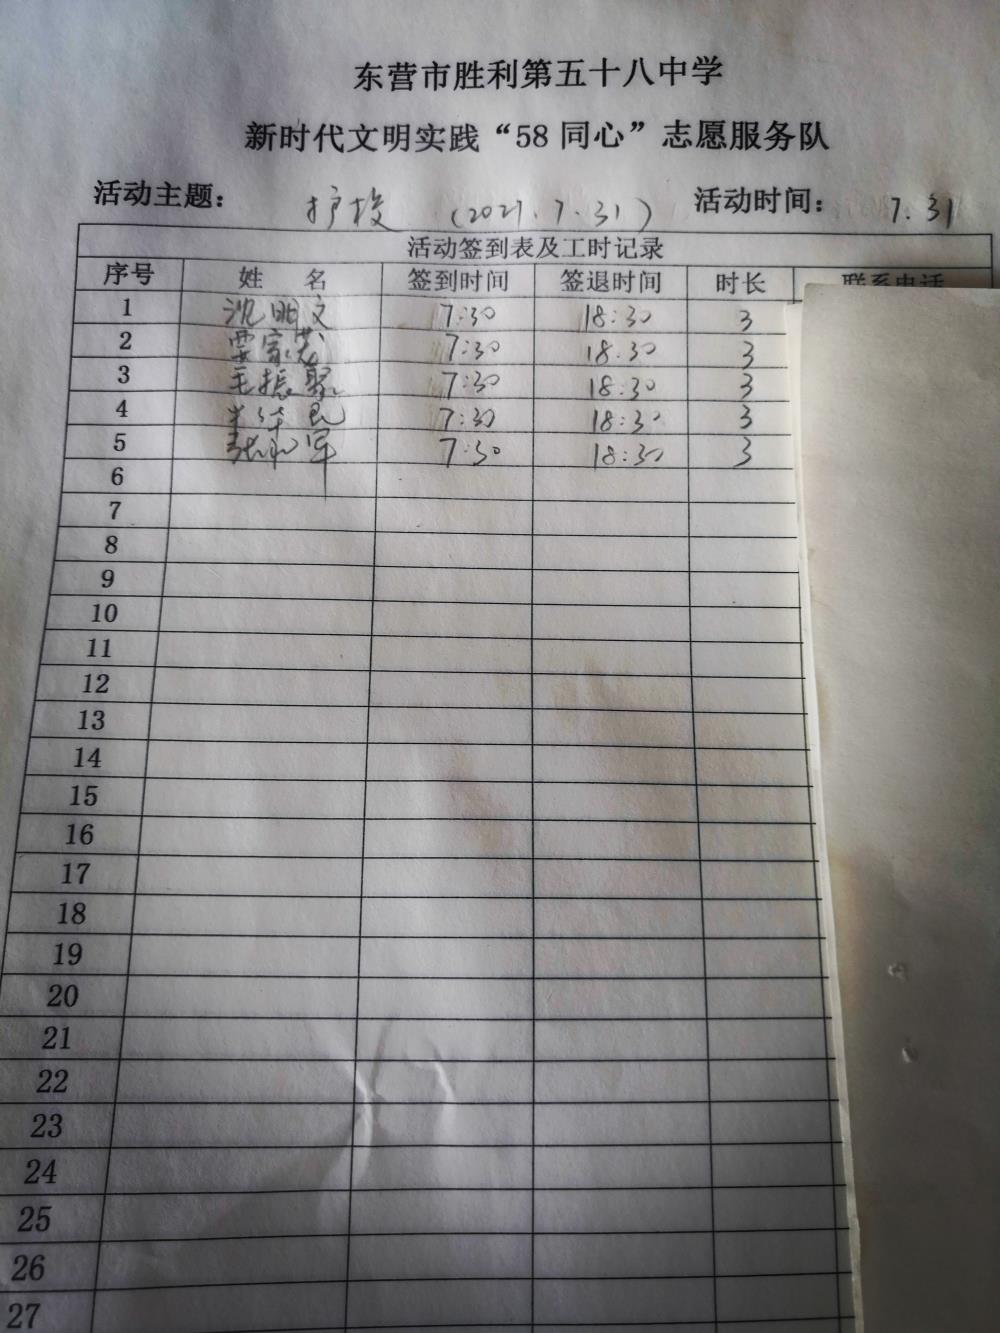 东营市胜利第五十八中学
新时代文明实践“58 同心”志愿服务队
活动主题： 护校 (2021.7.31) 活动时间： 7.31
活动签到表及工时记录
序号 姓 名 签到时间 签退时间 时长 联系电话
1 沈明文 7:30 18:30 3
2 7:30 18.30 3
3 王振聚 7:30 18:30 3
4 7:30 18:30 3
5 张和军 7:30 18:30 3
6
7
8
9
10
11
12
13
14
15
16
17
18
19
20
21
22
23
24
25
26
27